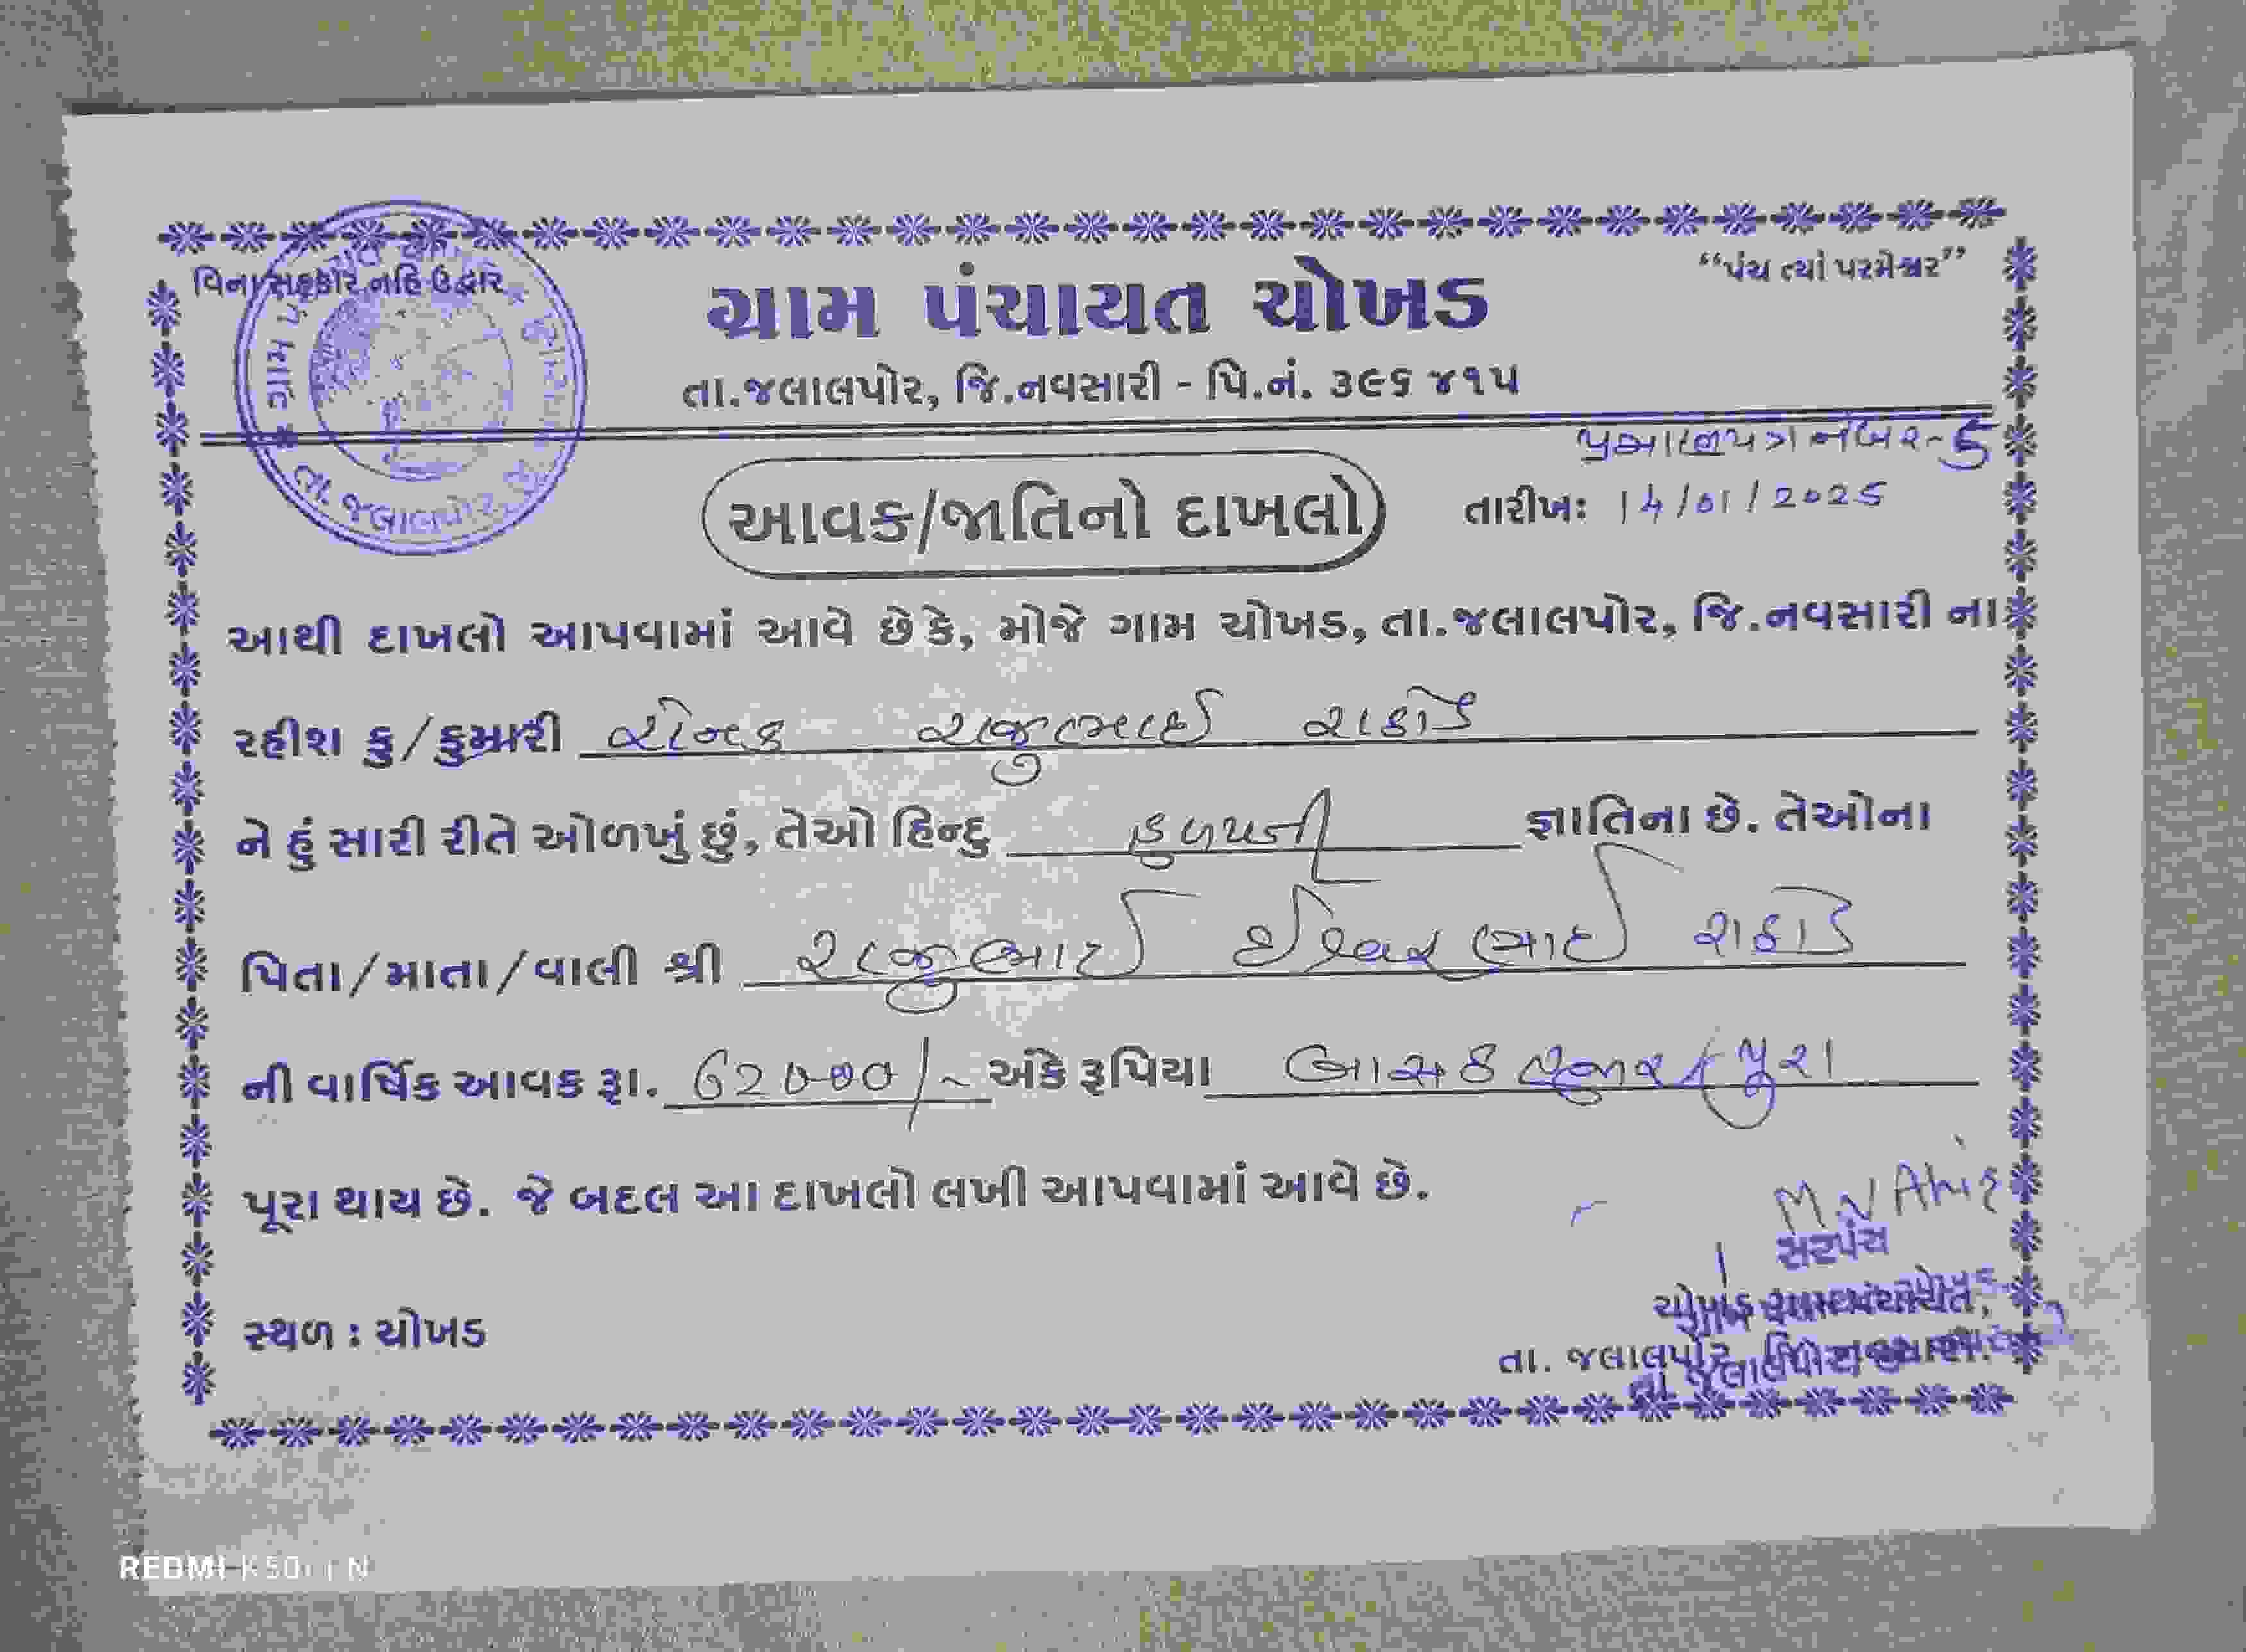 વિના સહકાર નહિ ઉદ્ધાર
"પંચ ત્યાં પરમેશ્વર"
ગ્રામ પંચાયત ચોખડ
તા.જલાલપોર, જિ.નવસારી - પિ.નં. ૩૯૬ ૪૧૫
પ્રમાણપત્ર નંબર-5
આવક/જાતિનો દાખલો
તારીખઃ 14/01/2025
તા. જલાલપોર
આથી દાખલો આપવામાં આવે છે કે, મોજે ગામ ચોખડ, તા.જલાલપોર, જિ.નવસારી ના
રહીશ કુ/કુમારી રોનક રાજુભાઈ રાઠોડ
ને હું સારી રીતે ઓળખું છું, તેઓ હિન્દુ હળપતી જ્ઞાતિના છે. તેઓના
પિતા/માતા/વાલી શ્રી રાજુભાઈ ઈશ્વરભાઈ રાઠોડ
ની વાર્ષિક આવક રૂા. 62000/- અંકે રૂપિયા બાસઠ હજાર પુરા
પૂરા થાય છે. જે બદલ આ દાખલો લખી આપવામાં આવે છે.
M N Ahir
સરપંચ
સ્થળ : ચોખડ
તા. જલાલપોર,
REDMI K50i